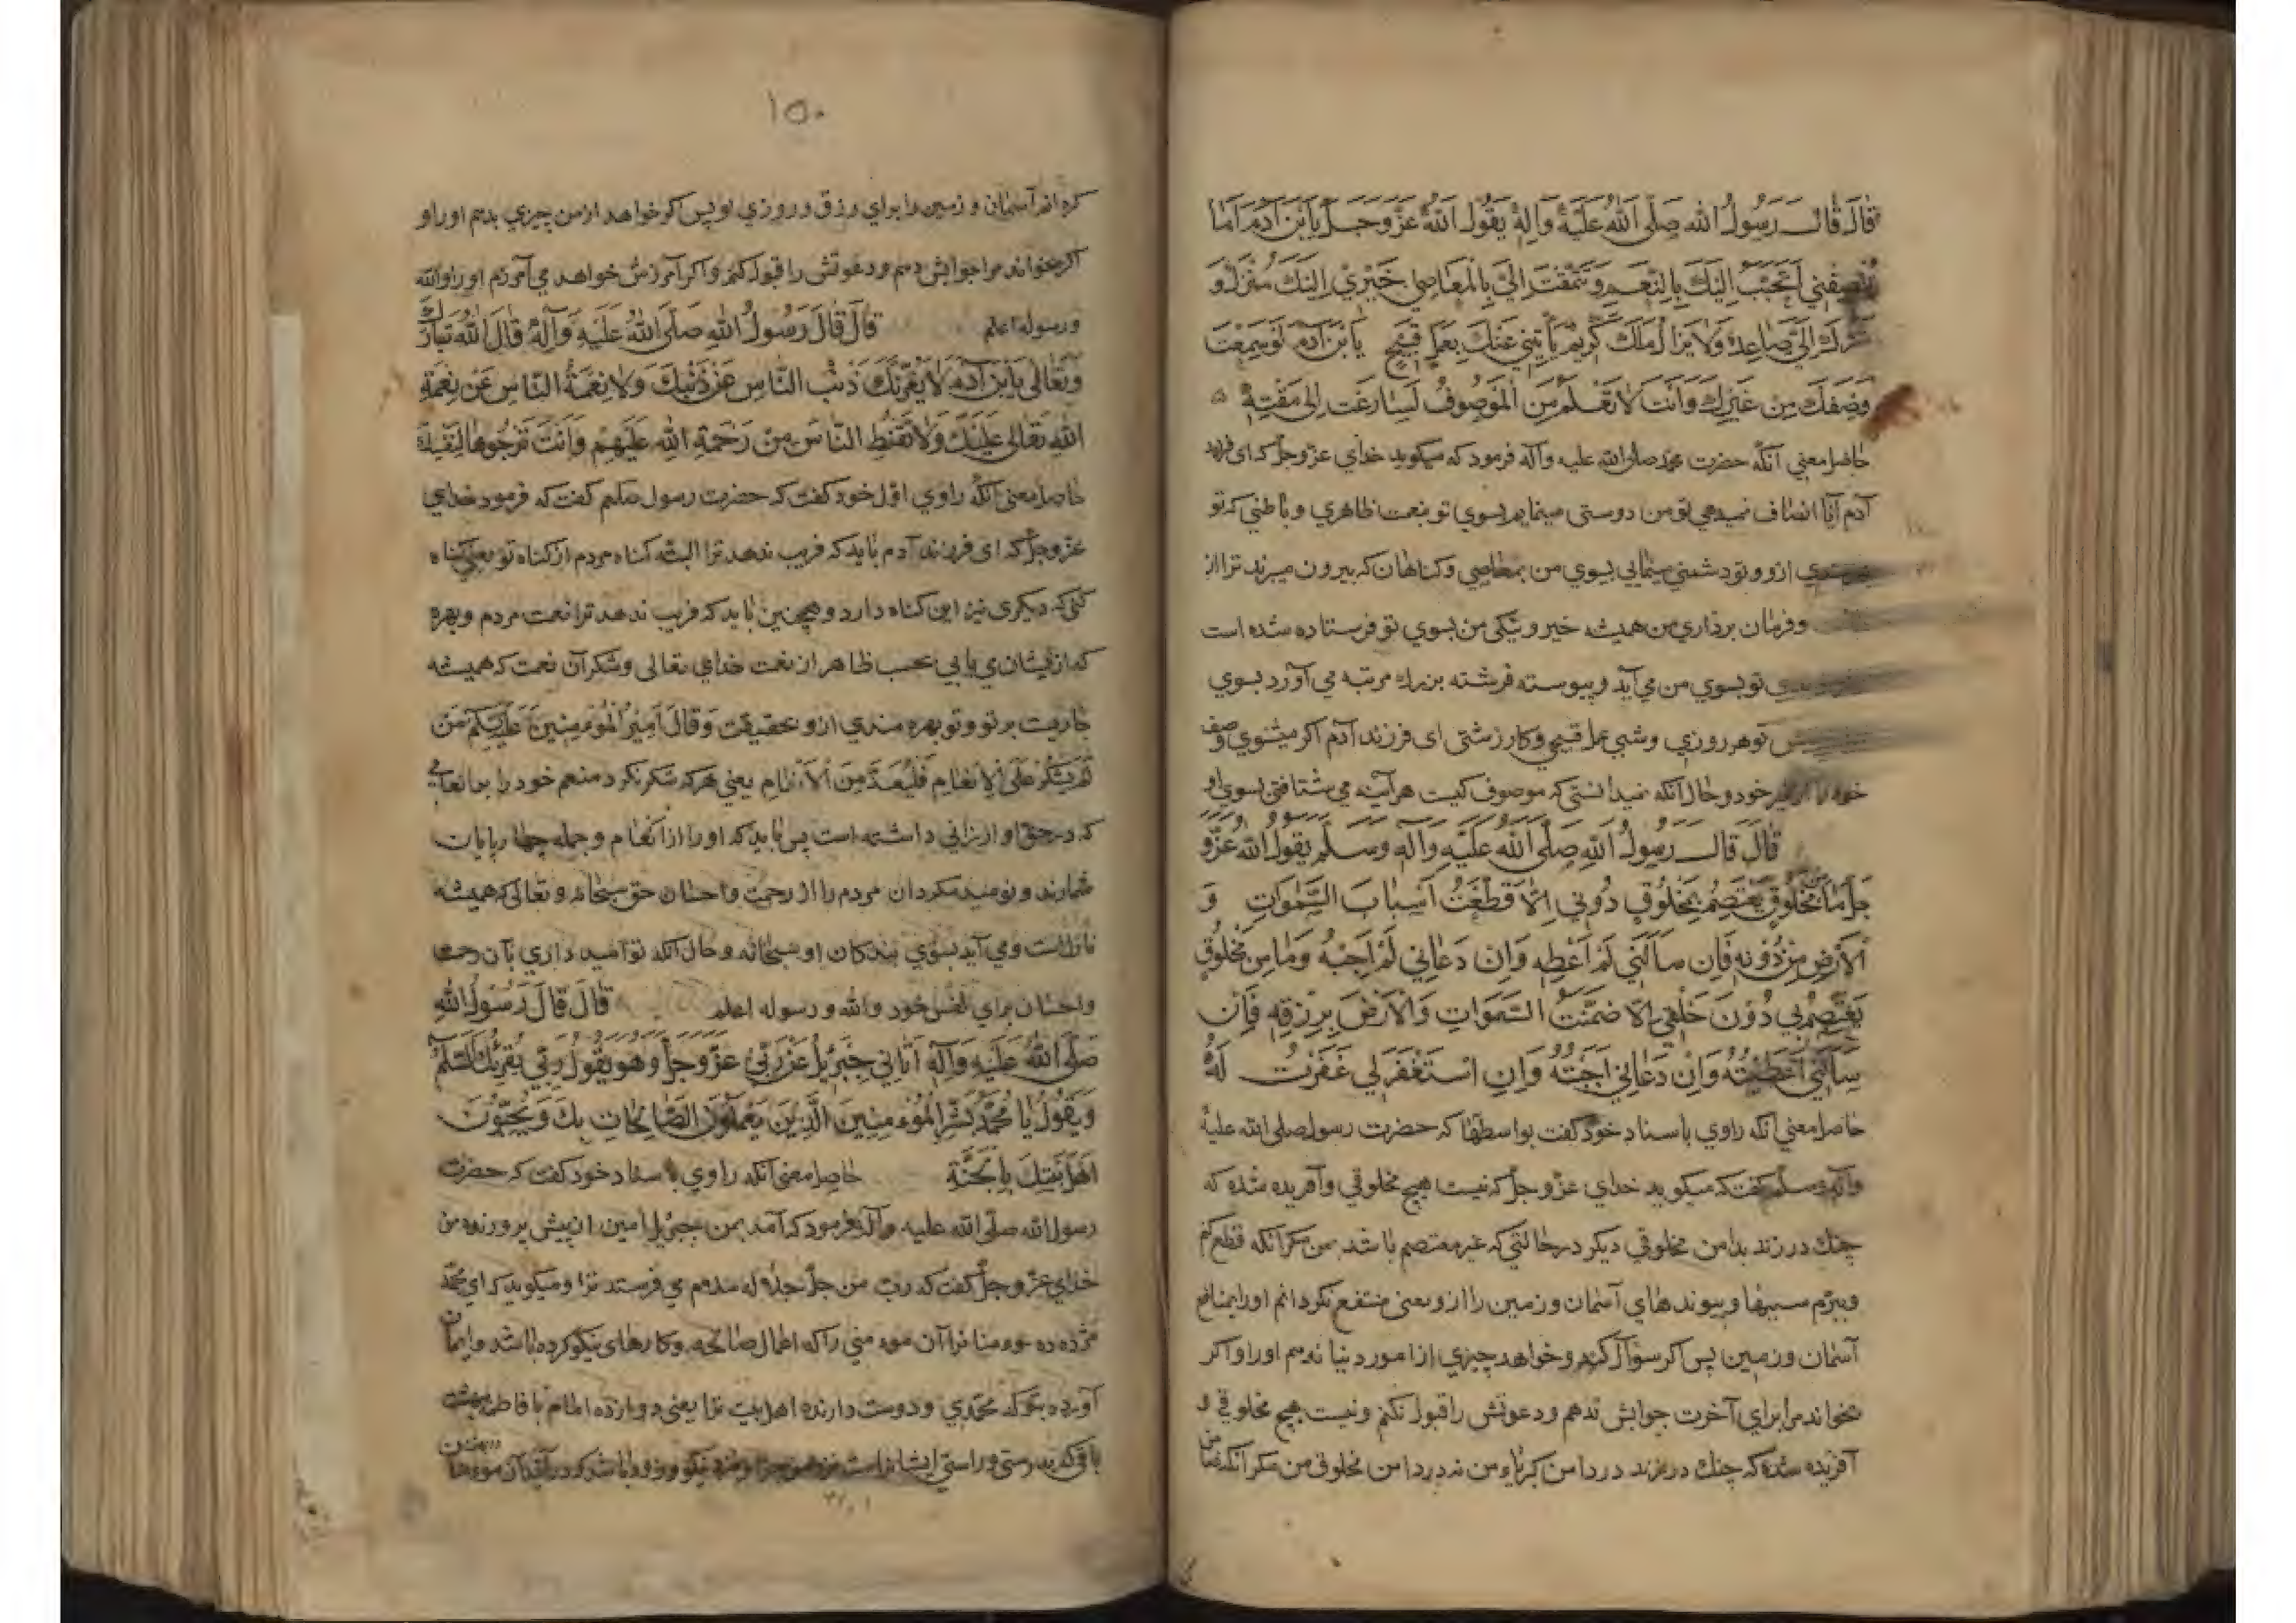 قَالَ قَالَ رَسُولُ اللهِ صَلَّى اللهُ عَلَيْهِ وَآلِهِ يَقُولُ اللهُ عَزَّ وَجَلَّ يَا ابْنَ آدَمَ اَمَا
تُنْصِفُنِي اَتَحَبَّبُ اِلَيْكَ بِالنِّعَمِ وَتَتَمَقَّتُ اِلَيَّ بِالْمَعَاصِي خَيْرِي اِلَيْكَ مُنْزَلٌ وَ
شَرُّكَ اِلَيَّ صَاعِدٌ وَلَا يَزَالُ مَلَكٌ كَرِيمٌ يَأْتِينِي عَنْكَ بِعَمَلٍ قَبِيحٍ يَا ابْنَ آدَمَ لَوْ سَمِعْتَ
وَصْفَكَ مِنْ غَيْرِكَ وَاَنْتَ لَا تَعْلَمُ مَنِ الْمَوْصُوفُ لَسَارَعْتَ اِلَى مَقْتِهِ
حاصل معنی آنکه حضرت محمد صلی الله علیه وآله فرمود که میکوید خدای عزّ وجلّ که ای فرزند
آدم آیا انصاف نمیدهی تو من دوستی مینمایم بسوی تو بنعمت ظاهری و باطنی که تو
ازو و تو دشمنی مینمایی بسوی من بمعاصی و کناهان که بیرون میبرند ترا از
و فرمان برداری من همیشه خیر و نیکی من بسوی تو فرستاده شده است
تو بسوی من می آید و پیوسته فرشته بزرك مرتبه می آورد بسوی
تو هر روزی و شبی عمل قبیح و کار زشتی ای فرزند آدم اکر میشنوی وصف
خود را از غیر خود و حال آنکه نمیدانستی که موصوف کیست هر آینه می شتافتی بسوی او
قَالَ قَالَ رَسُولُ اللهِ صَلَّى اللهُ عَلَيْهِ وَآلِهِ وَسَلَّمَ يَقُولُ اللهُ عَزَّ وَ
جَلَّ مَا مِنْ مَخْلُوقٍ يَعْتَصِمُ بِمَخْلُوقٍ دُونِي اِلَّا قَطَعْتُ اَسْبَابَ السَّمَوَاتِ وَ
الْاَرْضِ مِنْ دُونِهِ فَاِنْ سَأَلَنِي لَمْ اُعْطِهِ وَاِنْ دَعَانِي لَمْ اُجِبْهُ وَمَا مِنْ مَخْلُوقٍ
يَعْتَصِمُ بِي دُونَ خَلْقِي اِلَّا ضَمَّنْتُ السَّمَوَاتِ وَالْاَرْضَ بِرِزْقِهِ فَاِنْ
سَأَلَنِي اَعْطَيْتُهُ وَاِنْ دَعَانِي اَجَبْتُهُ وَاِنِ اسْتَغْفَرَ لِي غَفَرْتُ لَهُ
حاصل معنی آنکه راوی باسناد خود کفت بواسطها که حضرت رسول صلی الله علیه
وآله وسلم کفت که میکوید خدای عزّ وجلّ که نیست هیچ مخلوقی و آفریده شده که
چنك در زند بدامن مخلوقی دیکر در حالتی که غیر معتصم باشد بمن مکر آنکه قطع کنم
و ببرم سببها و پیوندهای آسمان و زمین را ازو یعنی منتفع نکردانم او را بمنافع
آسمان و زمین پس اکر سؤال کند و خواهد چیزی از امور دنیا ندهم او را و اکر
بخواند مرا برای آخرت جوابش ندهم و دعوتش را قبول نکنم و نیست هیچ مخلوقی و
آفریده شده که چنك در زند در دامن کبریاء من نه در دامن مخلوق من مکر آنکه ضامن
۱۵۰
کرده ام آسمان و زمین را برای رزق و روزی او پس اکر خواهد از من چیزی بدهم او را و
اکر بخواند مرا جوابش دهم و دعوتش را قبول کنم و اکر آمرزش خواهد می آمرزم او را والله
ورسوله اعلم قَالَ قَالَ رَسُولُ اللهِ صَلَّى اللهُ عَلَيْهِ وَآلِهِ قَالَ اللهُ تَبَارَكَ
وَتَعَالَى يَا ابْنَ آدَمَ لَا يَغُرَّنَّكَ ذَنْبُ النَّاسِ عَنْ ذَنْبِكَ وَلَا نِعْمَةُ النَّاسِ عَنْ نِعْمَةِ
اللهِ تَعَالَى عَلَيْكَ وَلَا تُقَنِّطِ النَّاسَ مِنْ رَحْمَةِ اللهِ عَلَيْهِمْ وَاَنْتَ تَرْجُوهَا لِنَفْسِكَ
حاصل معنی آنکه راوی اوّل خود کفت که حضرت رسول صلعم کفت که فرمود خدای
عزّ وجلّ که ای فرزند آدم باید که فریب ندهد ترا البته کناه مردم از کناه تو یعنی کناه
کنی که دیکری نیز این کناه دارد و همچنین باید که فریب ندهد ترا نعمت مردم و بهره
که از ایشان می یابی بحسب ظاهر از نعمت خدای تعالی و شکر آن نعمت که همیشه
جاریست بر تو و تو بهره مندی ازو بحقیقت وَقَالَ اَمِيرُ الْمُؤْمِنِينَ عَلَيْهِ السَّلَامُ مَنْ
لَمْ يَشْكُرْ عَلَى الْاِنْعَامِ فَلْيُعَدَّ مِنَ الْاَنْعَامِ یعنی هر که شکر نکرد منعم خود را بر انعامی
که در حق او ارزانی داشته است پس باید که او را از انعام و جمله چهارپایان
شمارند و نومید مکردان مردم را از رحمت و احسان حق سبحانه و تعالی که همیشه
نازلست و می آید بسوی بندکان او سبحانه و حال آنکه تو امید داری بآن رحمت
و احسان برای نفس خود والله ورسوله اعلم قَالَ قَالَ رَسُولُ اللهِ
صَلَّى اللهُ عَلَيْهِ وَآلِهِ اَتَانِي جِبْرَئِيلُ عَنْ رَبِّي عَزَّ وَجَلَّ وَهُوَ يَقُولُ رَبِّي يُقْرِئُكَ السَّلَامَ
وَيَقُولُ يَا مُحَمَّدُ بَشِّرِ الْمُؤْمِنِينَ الَّذِينَ يَعْمَلُونَ الصَّالِحَاتِ بِكَ وَيُحِبُّونَ
اَهْلَ بَيْتِكَ بِالْجَنَّةِ حاصل معنی آنکه راوی باسناد خود کفت که حضرت
رسول الله صلّی الله علیه وآله فرمود که آمد بمن جبرئیل امین از پیش پرورنده من
خدای عزّ وجلّ کفت که ربّ من جلّ جلاله سلام می فرستد ترا و میکوید که ای محمّد
مژده ده مؤمنانرا آن مؤمنی را که اعمال صالحه و کارهای نیکو کرده باشد و ایمان
آورده بتو که محمّدی و دوست دارنده اهل بیت ترا یعنی دوازده امام با فاطمه بهشت
باقی که بدرستی و راستی ایشانراست